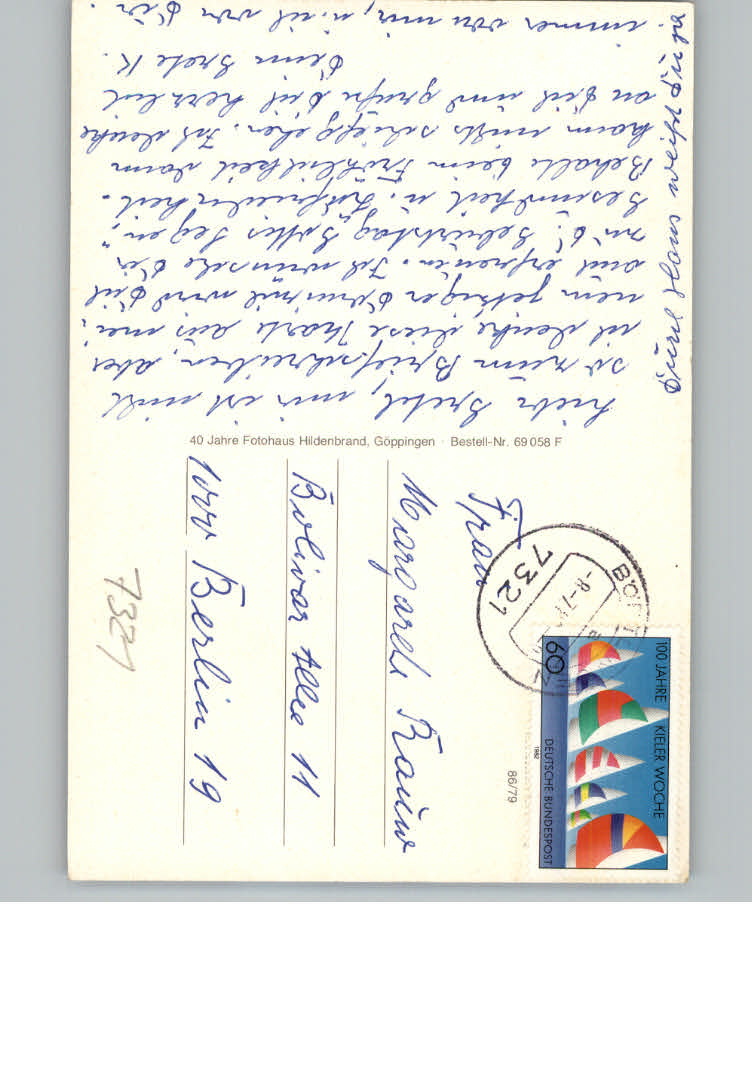 Liebe Gretel, mir ist nicht
so zum Briefschreiben, aber
ich denke diese Karte aus mei-
nem
Dich
auch erfreuen. Ich wünsche Dir
z. Geburtstag Gottes Segen,
Gesundheit u. Zufriedenheit.
Behalte Deine Fröhlichkeit dann
kann nichts schiefgehen. Ich denke
an Dich und grüße Dich herzlich
Deine Grete K.
immer von mir, u. ich von Dir.
40 Jahre Fotohaus Hildenbrand, Göppingen · Bestell-Nr. 69 058 F
Frau
Margarete
Bolivar Allee 11
1000 Berlin 19
7321
7321
-8.-7
100 JAHRE KIELER WOCHE
60
DEUTSCHE BUNDESPOST
1982
86/79